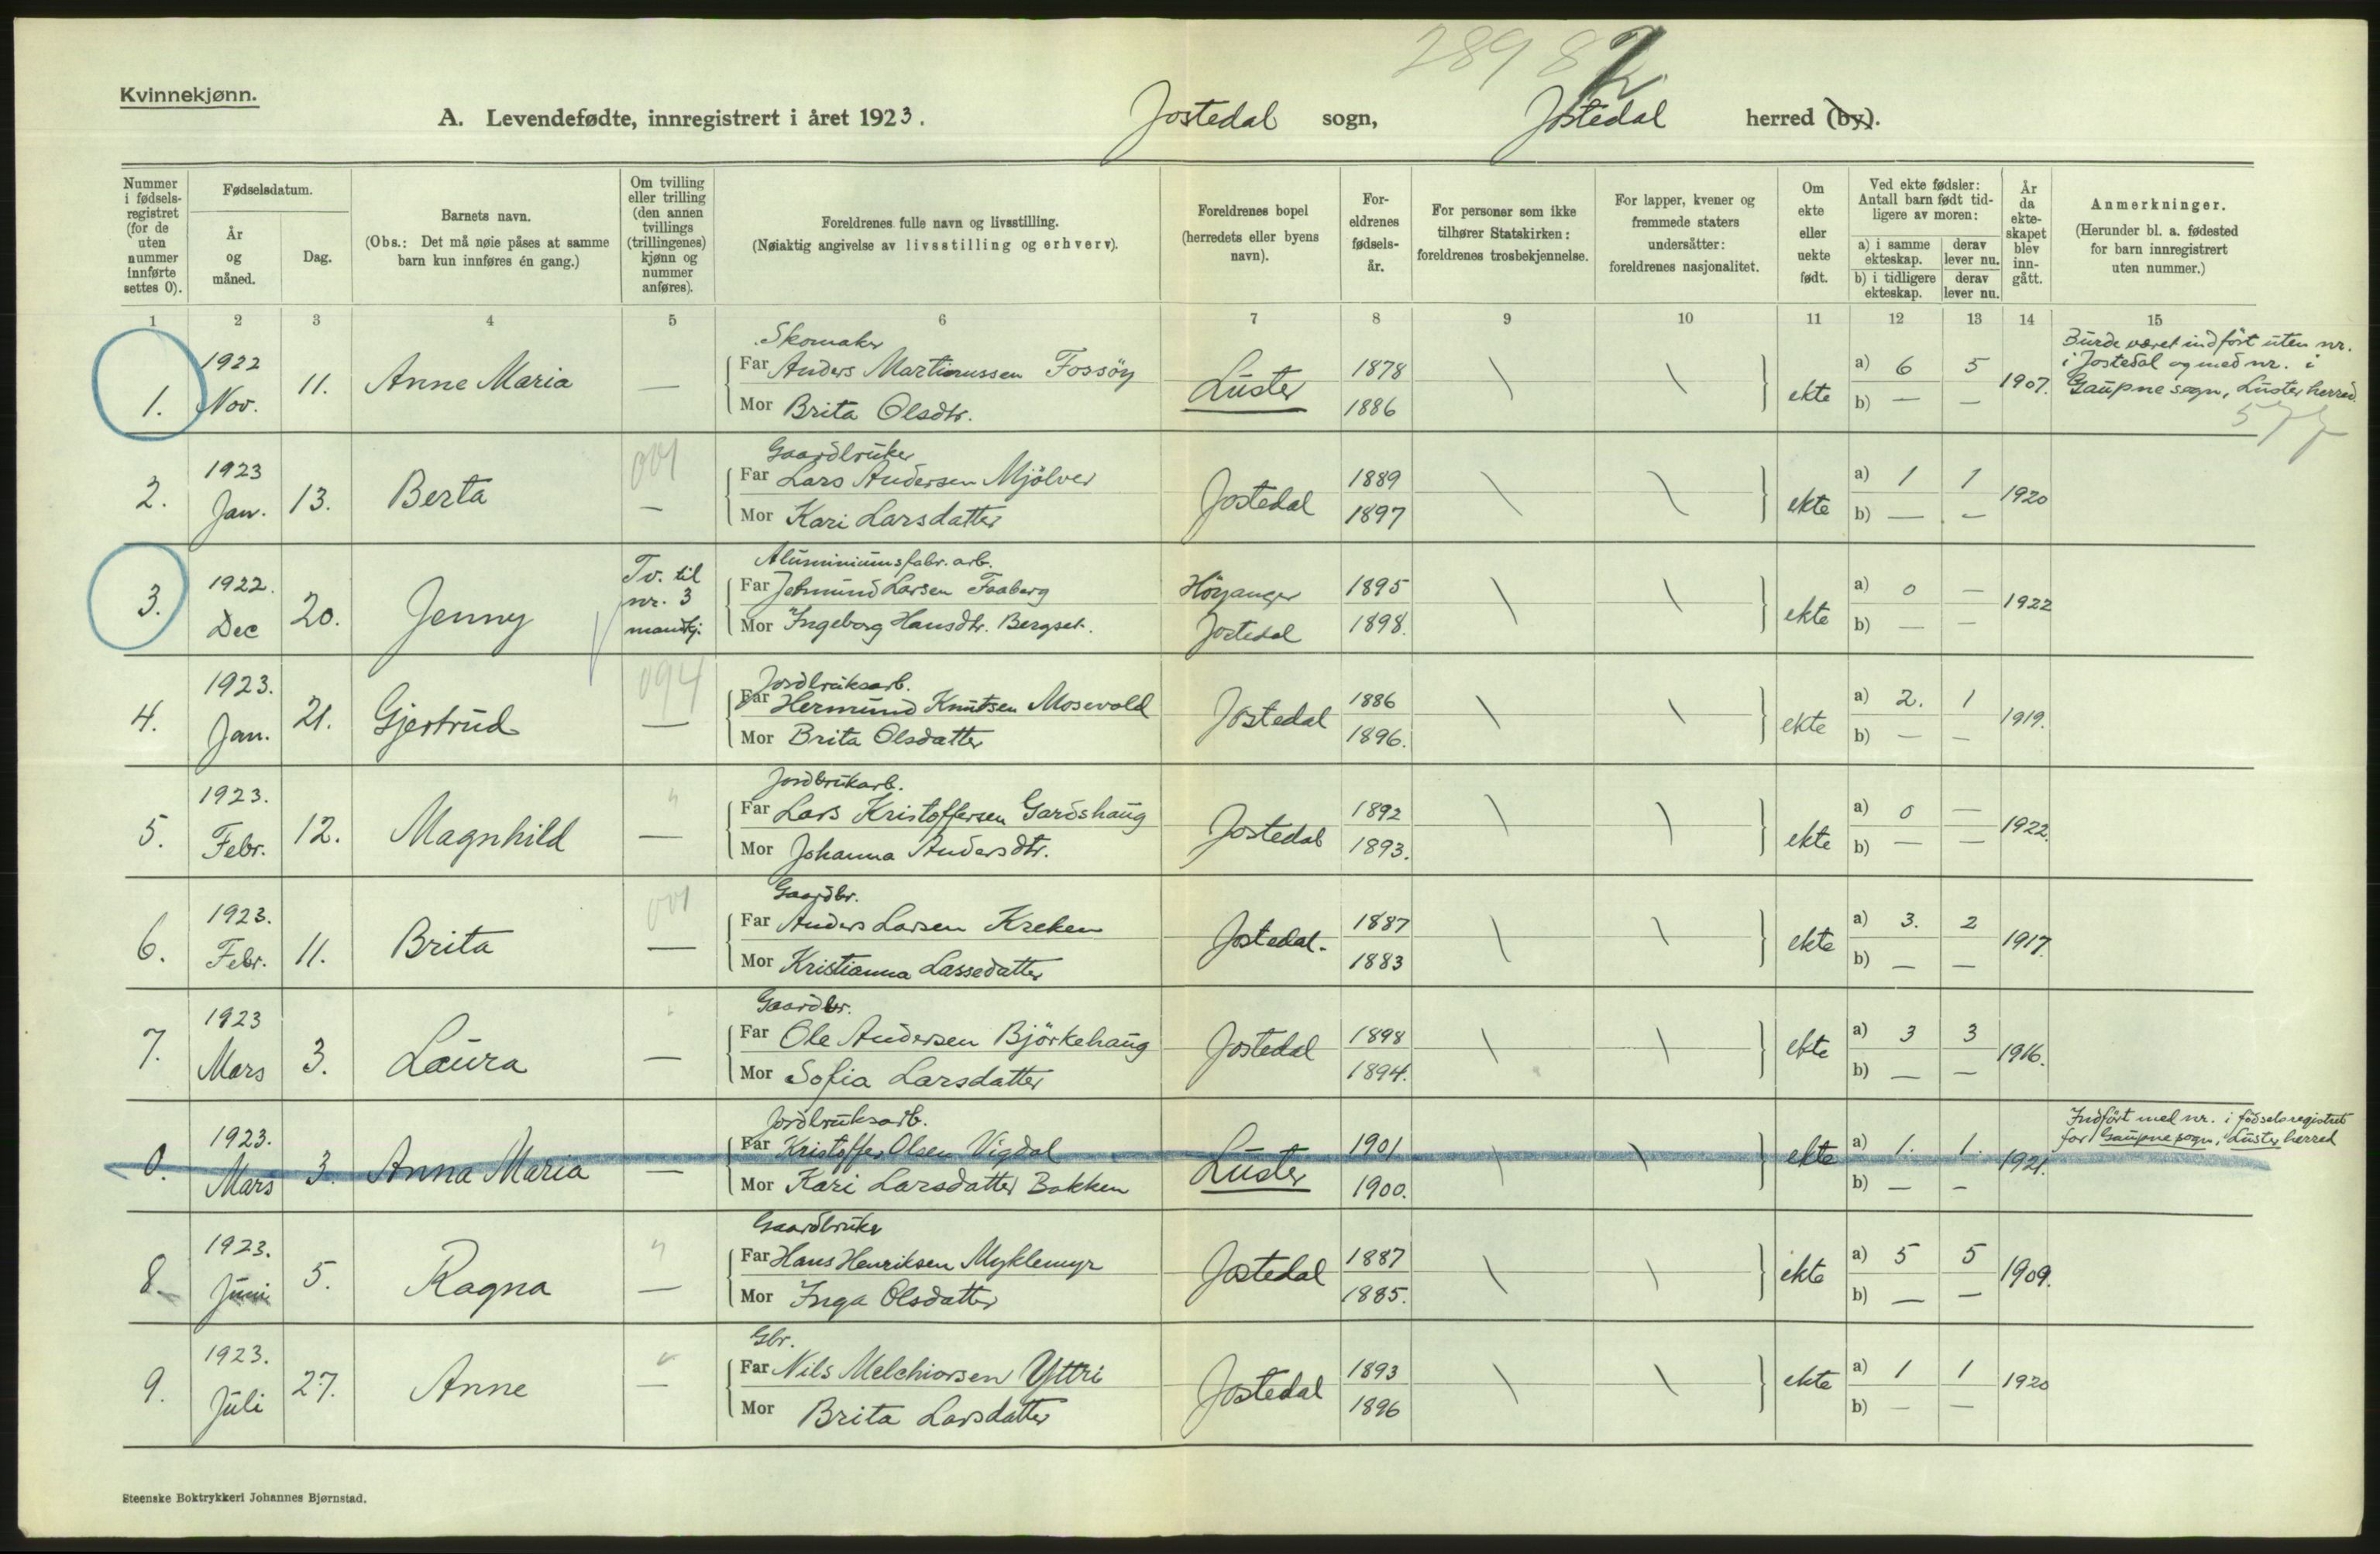 28982
Kvinnekjønn.
A. Levendefødte, innregistrert i året 1923. Jostedal sogn, Jostedal herred (by).
Nummer i fødselsregistret (for de uten nummer innførte settes 0).
Fødselsdatum.
År og måned.
Dag.
Barnets navn.
(Obs.: Det må nøie påses at samme barn kun innføres én gang.)
Om tvilling eller trilling (den annen tvillings (trillingenes) kjønn og nummer anføres).
Foreldrenes fulle navn og livsstilling.
(Nøiaktig angivelse av livsstilling og erhverv).
Foreldrenes bopel (herredets eller byens navn).
Foreldrenes fødselsår.
For personer som ikke tilhører Statskirken: foreldrenes trosbekjennelse.
For lapper, kvener og fremmede staters undersåtter: foreldrenes nasjonalitet.
Om ekte eller uekte født.
Ved ekte fødsler: Antall barn født tidligere av moren:
a) i samme ekteskap. derav lever nu.
b) i tidligere ekteskap. derav lever nu.
År da ekteskapet blev inngått.
Anmerkninger.
(Herunder bl. a. fødested for barn innregistrert uten nummer.)
1 2 3 4 5 6 7 8 9 10 11 12 13 14 15
1. 1922 Nov. 11. Anne Maria —
Skomaker
Far Anders Martinussen Fossöy
Mor Brita Olsdtr.
Luster 1878 1886 ekte a) 6 5 b) — — 1907.
Burde været indført uten nr.
i Jostedal og med nr. i
Gaupne sogn, Luster herred.
2. 1923 Jan. 13. Berta 001 —
Gaardbruker
Far Lars Andersen Mjölver
Mor Kari Larsdatter
Jostedal 1889 1897 ekte a) 1 1 b) — — 1920
3. 1922. Dec 20. Jenny
Tv. til
nr. 3
mandkj.
Aluminiumsfabr. arb.
Far Jetmund Larsen Faaberg
Mor Ingeborg Hansdtr. Bergset.
Höyanger Jostedal 1895 1898. ekte a) 0 — b) — — 1922
4. 1923. Jan. 21. Gjertrud 094 —
Jordbruksarb.
Far Hermund Knutsen Mosevold
Mor Brita Olsdatter
Jostedal 1886 1896. ekte a) 2. 1 b) — — 1919.
5. 1923. Febr. 12. Magnhild " —
Jordbrukarb.
Far Lars Kristoffersen Gardshaug
Mor Johanna Andersdtr.
Jostedal 1892 1893. ekte a) 0 — b) — — 1922.
6. 1923. Febr. 11. Brita 001 —
Gaardbr.
Far Anders Larsen Kreken
Mor Kristianna Lassedatter
Jostedal. 1887 1883 ekte a) 3. 2 b) — — 1917.
7. 1923 Mars 3. Laura " —
Gaardbr.
Far Ole Andersen Björkehaug
Mor Sofia Larsdatter
Jostedal 1898 1894. ekte a) 3 3 b) — — 1916.
0. 1923. Mars 3. Anna Maria —
Jordbruksarb.
Far Kristoffer Olsen Vigdal
Mor Kari Larsdatter Bakken
Luster 1901 1900. ekte a) 1. 1. b) — — 1921.
Indført med nr. i fødselsregistret
for Gaupne sogn, Luster herred
8. 1923. Juni 5. Ragna " —
Gaardbruker
Far Hans Henriksen Myklemyr
Mor Inga Olsdatter
Jostedal 1887 1885. ekte a) 5 5 b) — — 1909.
9. 1923. Juli 27. Anne " —
Gbr.
Far Nils Melchiorsen Yttri
Mor Brita Larsdatter
Jostedal 1893 1896 ekte a) 1 1 b) — — 1920
Steenske Boktrykkeri Johannes Bjørnstad.